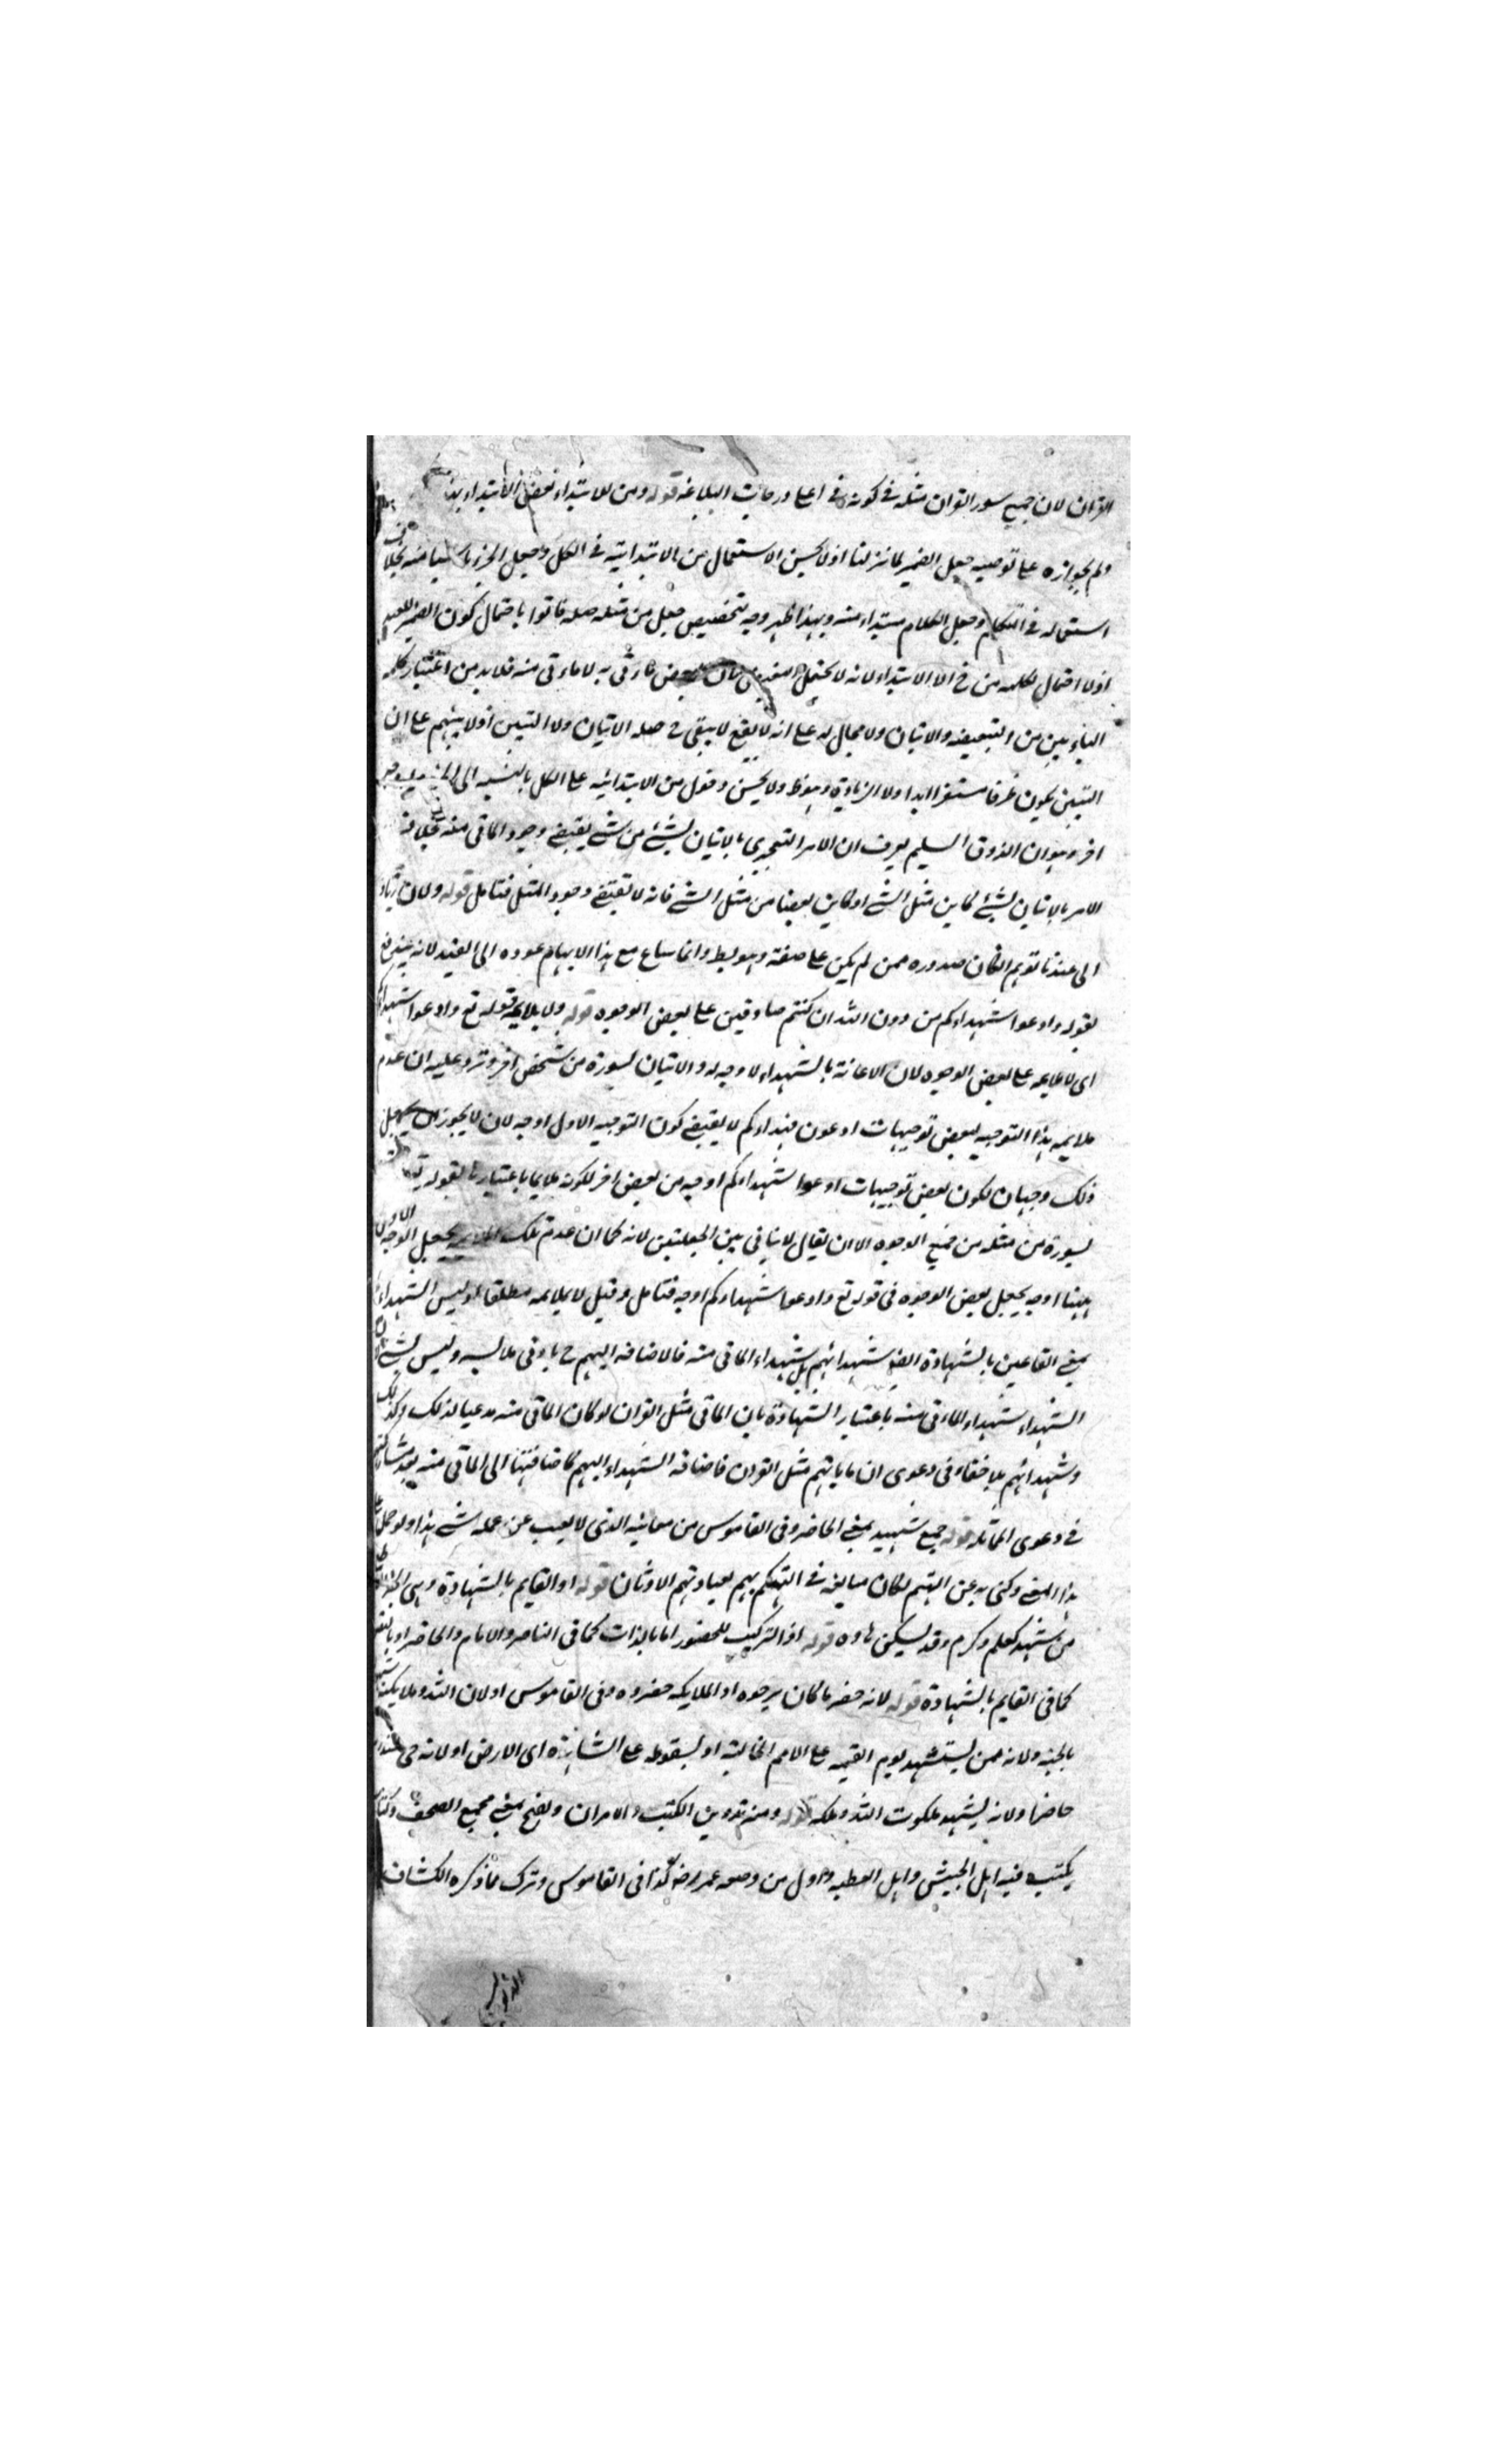 القران لان جميع سور القران مثله في كونه في اعلى درجات البلاغه قوله ومن للابتداء بعض الابتداء
ولم يجوازه على توجيه جعل الضمير لما نزلنا اذ لا يحسن الاستعمال من الابتدائيه في الكل وجعل الجزء
استعماله في التكلم وجعل الكلام مبتداء منه وبهذا ظهر وجه تخصيص جعل من مثله صله فاتوا باحتمال كون الضمير للعبد
اذ لا احتمال لكلمه من ح الا الابتداء لانه لا يحتمل بعض به لا ماءتى منه فلا بد من اعتبار
الباء بين من التبعيضه والاتيان ولا مجال له على انه لا يقع لا يبقى ح صله الاتيان ولا التبيين اذ لا مبهم على ان
التبيين يكون ظرفا مستقرا ابدا ولا الزيادة وهو ظ ولا يحسن دخول من الابتدائيه على الكل بالنسبه الى
اخر وهو ان الذوق السليم يعرف ان الامر التعجيزى بالاتيان لشئ من شئ يقتضى وجود الماتى منه بخلاف
الامر بالاتيان لشئ كاين مثل الشئ او كاين بعضا من مثل الشئ فانه لا تقتضى وجود المثل فتامل قوله ولان
الى عبدنا توهم امكان صدوره ممن لم يكن على صفته وانما ساغ مع هذا الايهام عوده الى العبد لانه يندفع
بقوله وادعوا شهداءكم من دون الله ان كنتم صادقين على بعض الوجوه قوله ولا يلايمه قوله تع وادعوا شهداءكم
اى لا يلايمه على بعض الوجوه لان الاعانة بالشهداء لا وجه له والاتيان لسورة من شخص اخر ويرد عليه ان عدم
ملايمه هذا التوجيه لبعض توجيهات ادعوا شهداءكم لا يقتضى كون التوجيه الاول اوجه لان لا يجوز ان يجعل
ذلك وجها لكون بعض توجيهات ادعوا شهداءكم اوجه من بعض اخر لكونه ملايما باعتبار
لسورة من مثله من جميع الوجوه الا ان يقال لا ينافى بين الجعلين لانه كما ان عدم تلك الملايمه يجعل الوجه الاول
ههنا اوجه يجعل بعض الوجوه في قوله تع وادعوا شهداءكم اوجه فتامل وقيل لا يلايمه مطلقا اذ ليس الشهداء
بمعنى القاعين بالشهادة شهدائهم بل شهداء الماتى منه فالاضافه اليهم ح بادنى ملابسه وليس بشئ
الشهداء شهداء الماتى منه باعتبار الشهادة بان الماتى مثل القران لو كان الماتى منه مدعيا لذلك وكذلك
وشهدائهم بلا خفاء فى دعوى ان ما ياتهم مثل القران فاضافه الشهداء اليهم كاضافتها الى الماتى منه بعد
في دعوى المماثله قوله جمع شهيد بمعنى الحاضر وفى القاموس من معانيه الذى لا يغيب عن علمه شئ هذا ولو حمل
هذا المعنى وكنى به عن الهتهم لكان مبالغه في التهكم بهم لعبادتهم الاوثان قوله او القايم بالشهادة وهى
من شهد كعلم وكرم وقد يسكن هاوه قوله اذ التركيب للحضور اما بالذات كما فى الناصر والامام والحاضر او
كما فى القايم بالشهادة قوله لانه حضر ما كان يرجوه او الملايكه حضروه وفى القاموس او لان الله وملايكته
بالجنه ولانه ممن يستشهد يوم القيمه على الامم الخاليه او لسقوطه على الشاهدة اى الارض او لانه حى عند
حاضرا ولانه يشهد ملكوت الله وملكه قوله ومنه تدوين الكتب والديوان ويفتح بمعنى مجمع الصحف والكتاب
يكتب فيه اهل الجيش واهل العطيه واول من وضعه عمر رضه كذا فى القاموس وترك ما ذكره الكشاف